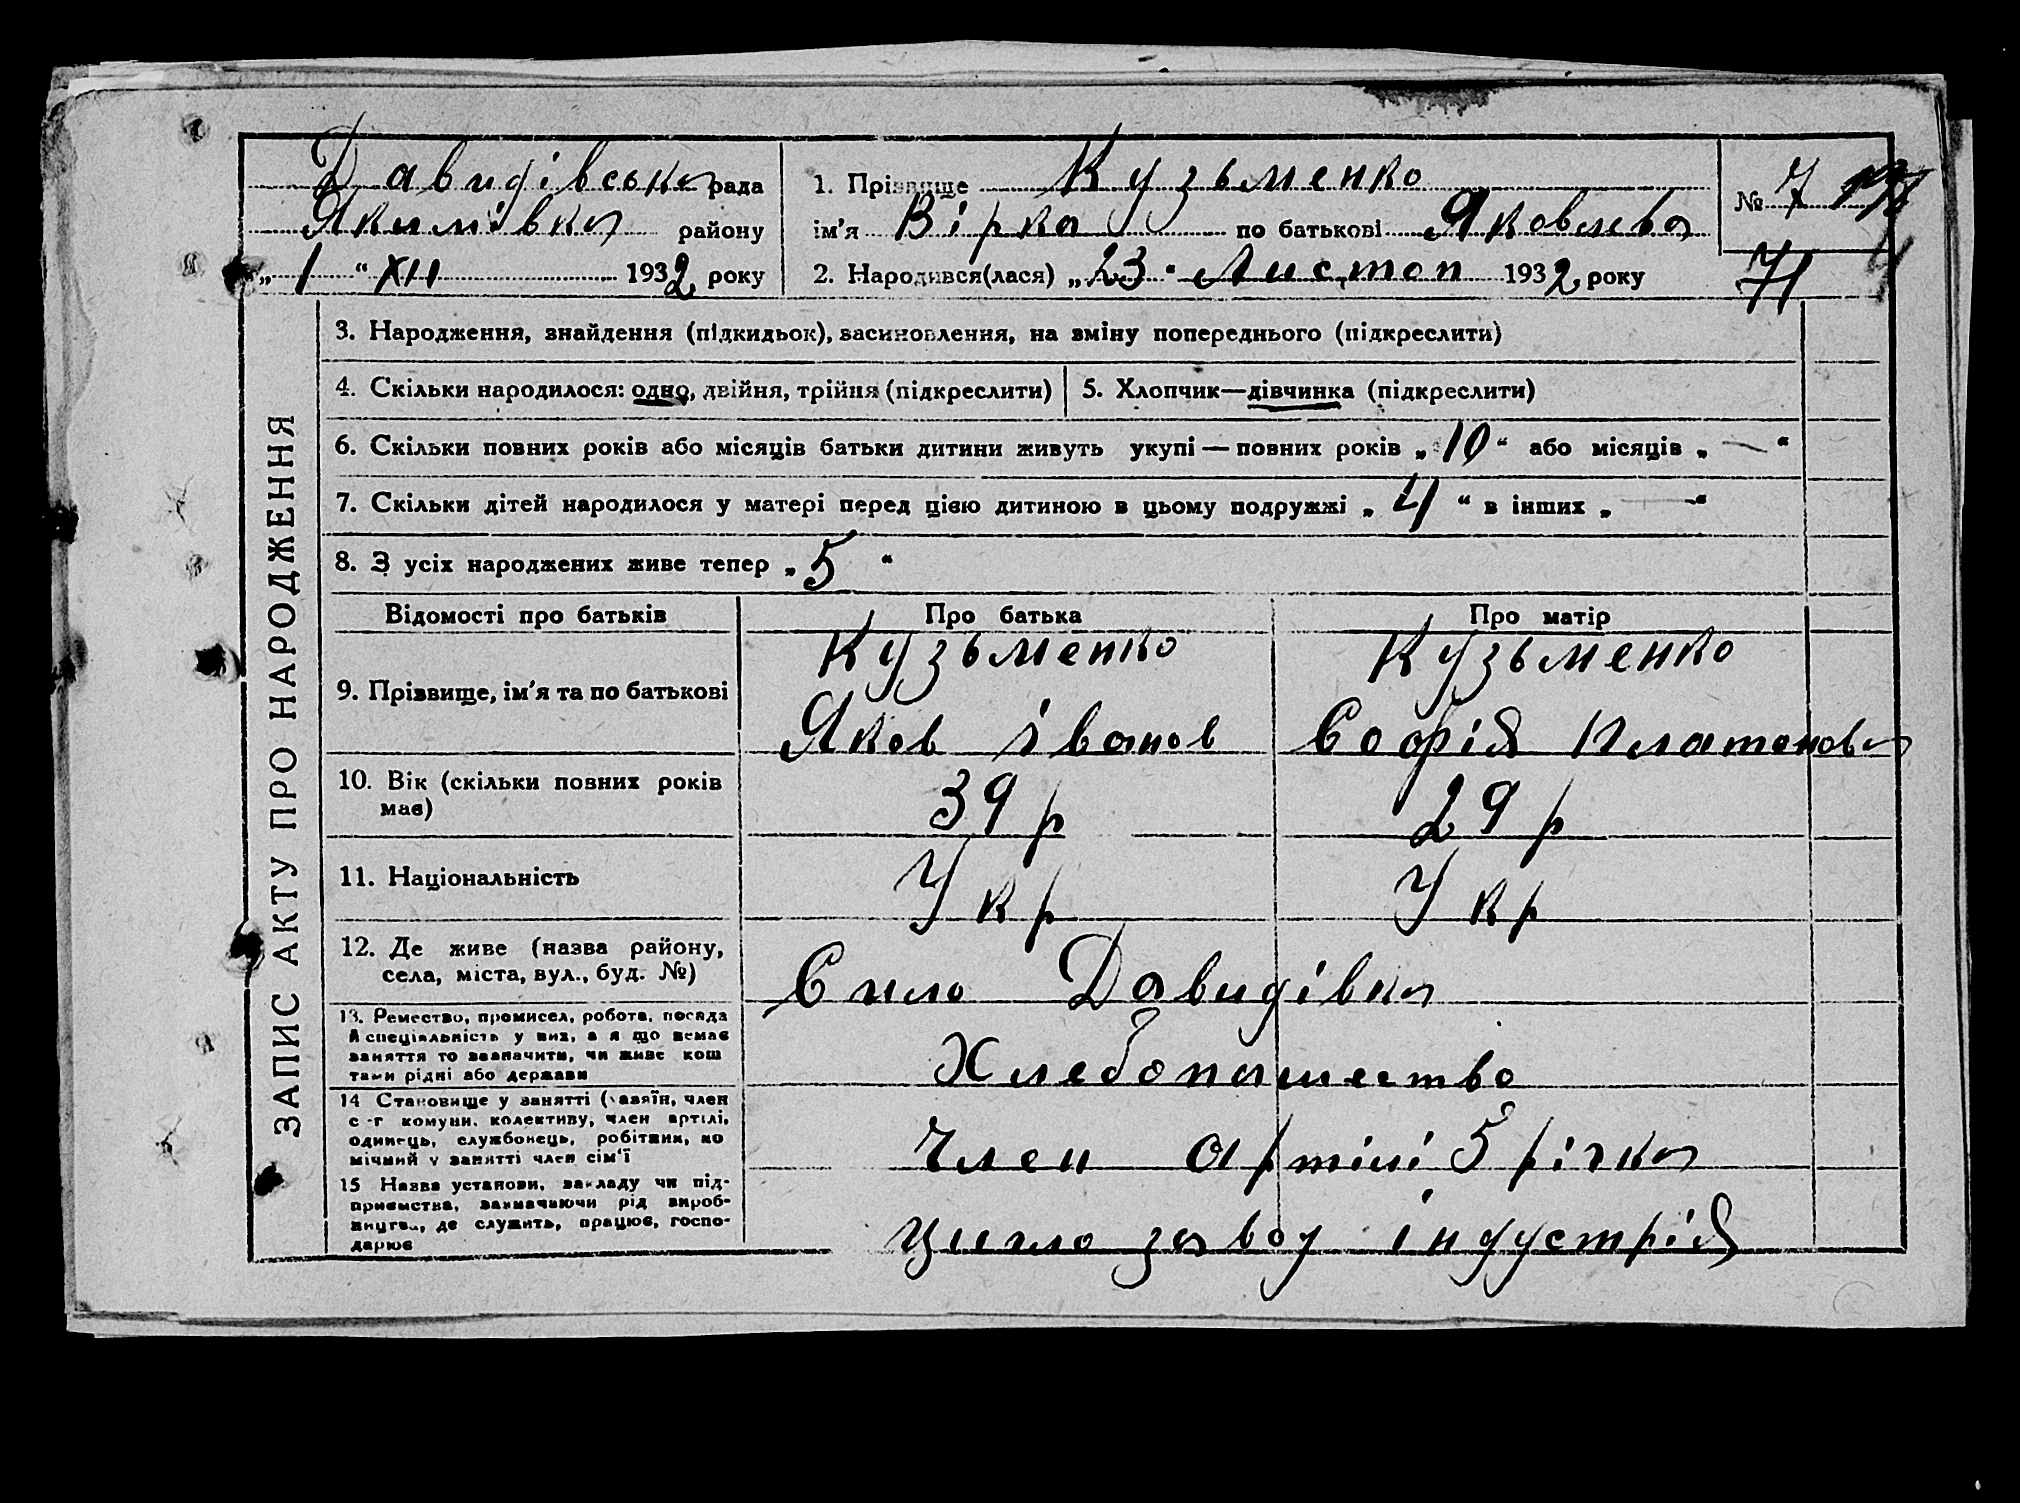 Давидівська рада
Якимівка району
„ 1 “ XII 1932 року
1. Прізвище Кузьменко
ім'я Вірка по батькові Яковлева
2. Народився(лася) „ 23 “ Листоп 1932 року
№ 7
71
ЗАПИС АКТУ ПРО НАРОДЖЕННЯ
3. Народження, знайдення (підкидьок), засиновлення, на зміну попереднього (підкреслити)
4. Скільки народилося: одно, двійня, трійня (підкреслити)
5. Хлопчик—дівчинка (підкреслити)
6. Скільки повних років або місяців батьки дитини живуть укупі — повних років „ 10 “ або місяців „ — “
7. Скільки дітей народилося у матері перед цією дитиною в цьому подружжі „ 4 “ в інших „ — “
8. З усіх народжених живе тепер „ 5 “
Відомості про батьків
Про батька
Про матір
9. Прізвище, ім'я та по батькові
Кузьменко
Яков Іванов
Кузьменко
Софія Платонова
10. Вік (скільки повних років
має)
39 р
29 р
11. Національність
Укр
Укр
12. Де живе (назва району,
села, міста, вул., буд. №)
Сило Давидівка
13. Ремество, промисел, робота, посада
й спеціальність у них, а я що немає
заняття то зазначити, чи живе кош
тами рідні або держави
Хлебопашество
14 Становище у занятті (хазяїн, член
с-г комуни, колективу, член артілі,
одинець, службовець, робітник, по
мічний у занятті член сім'ї
Член артілі 5 річка
15 Назва установи, закладу чи під-
приємства, зазначаючи рід вироб-
ництва, де служить, працює, госпо-
дарює
завод індустрія